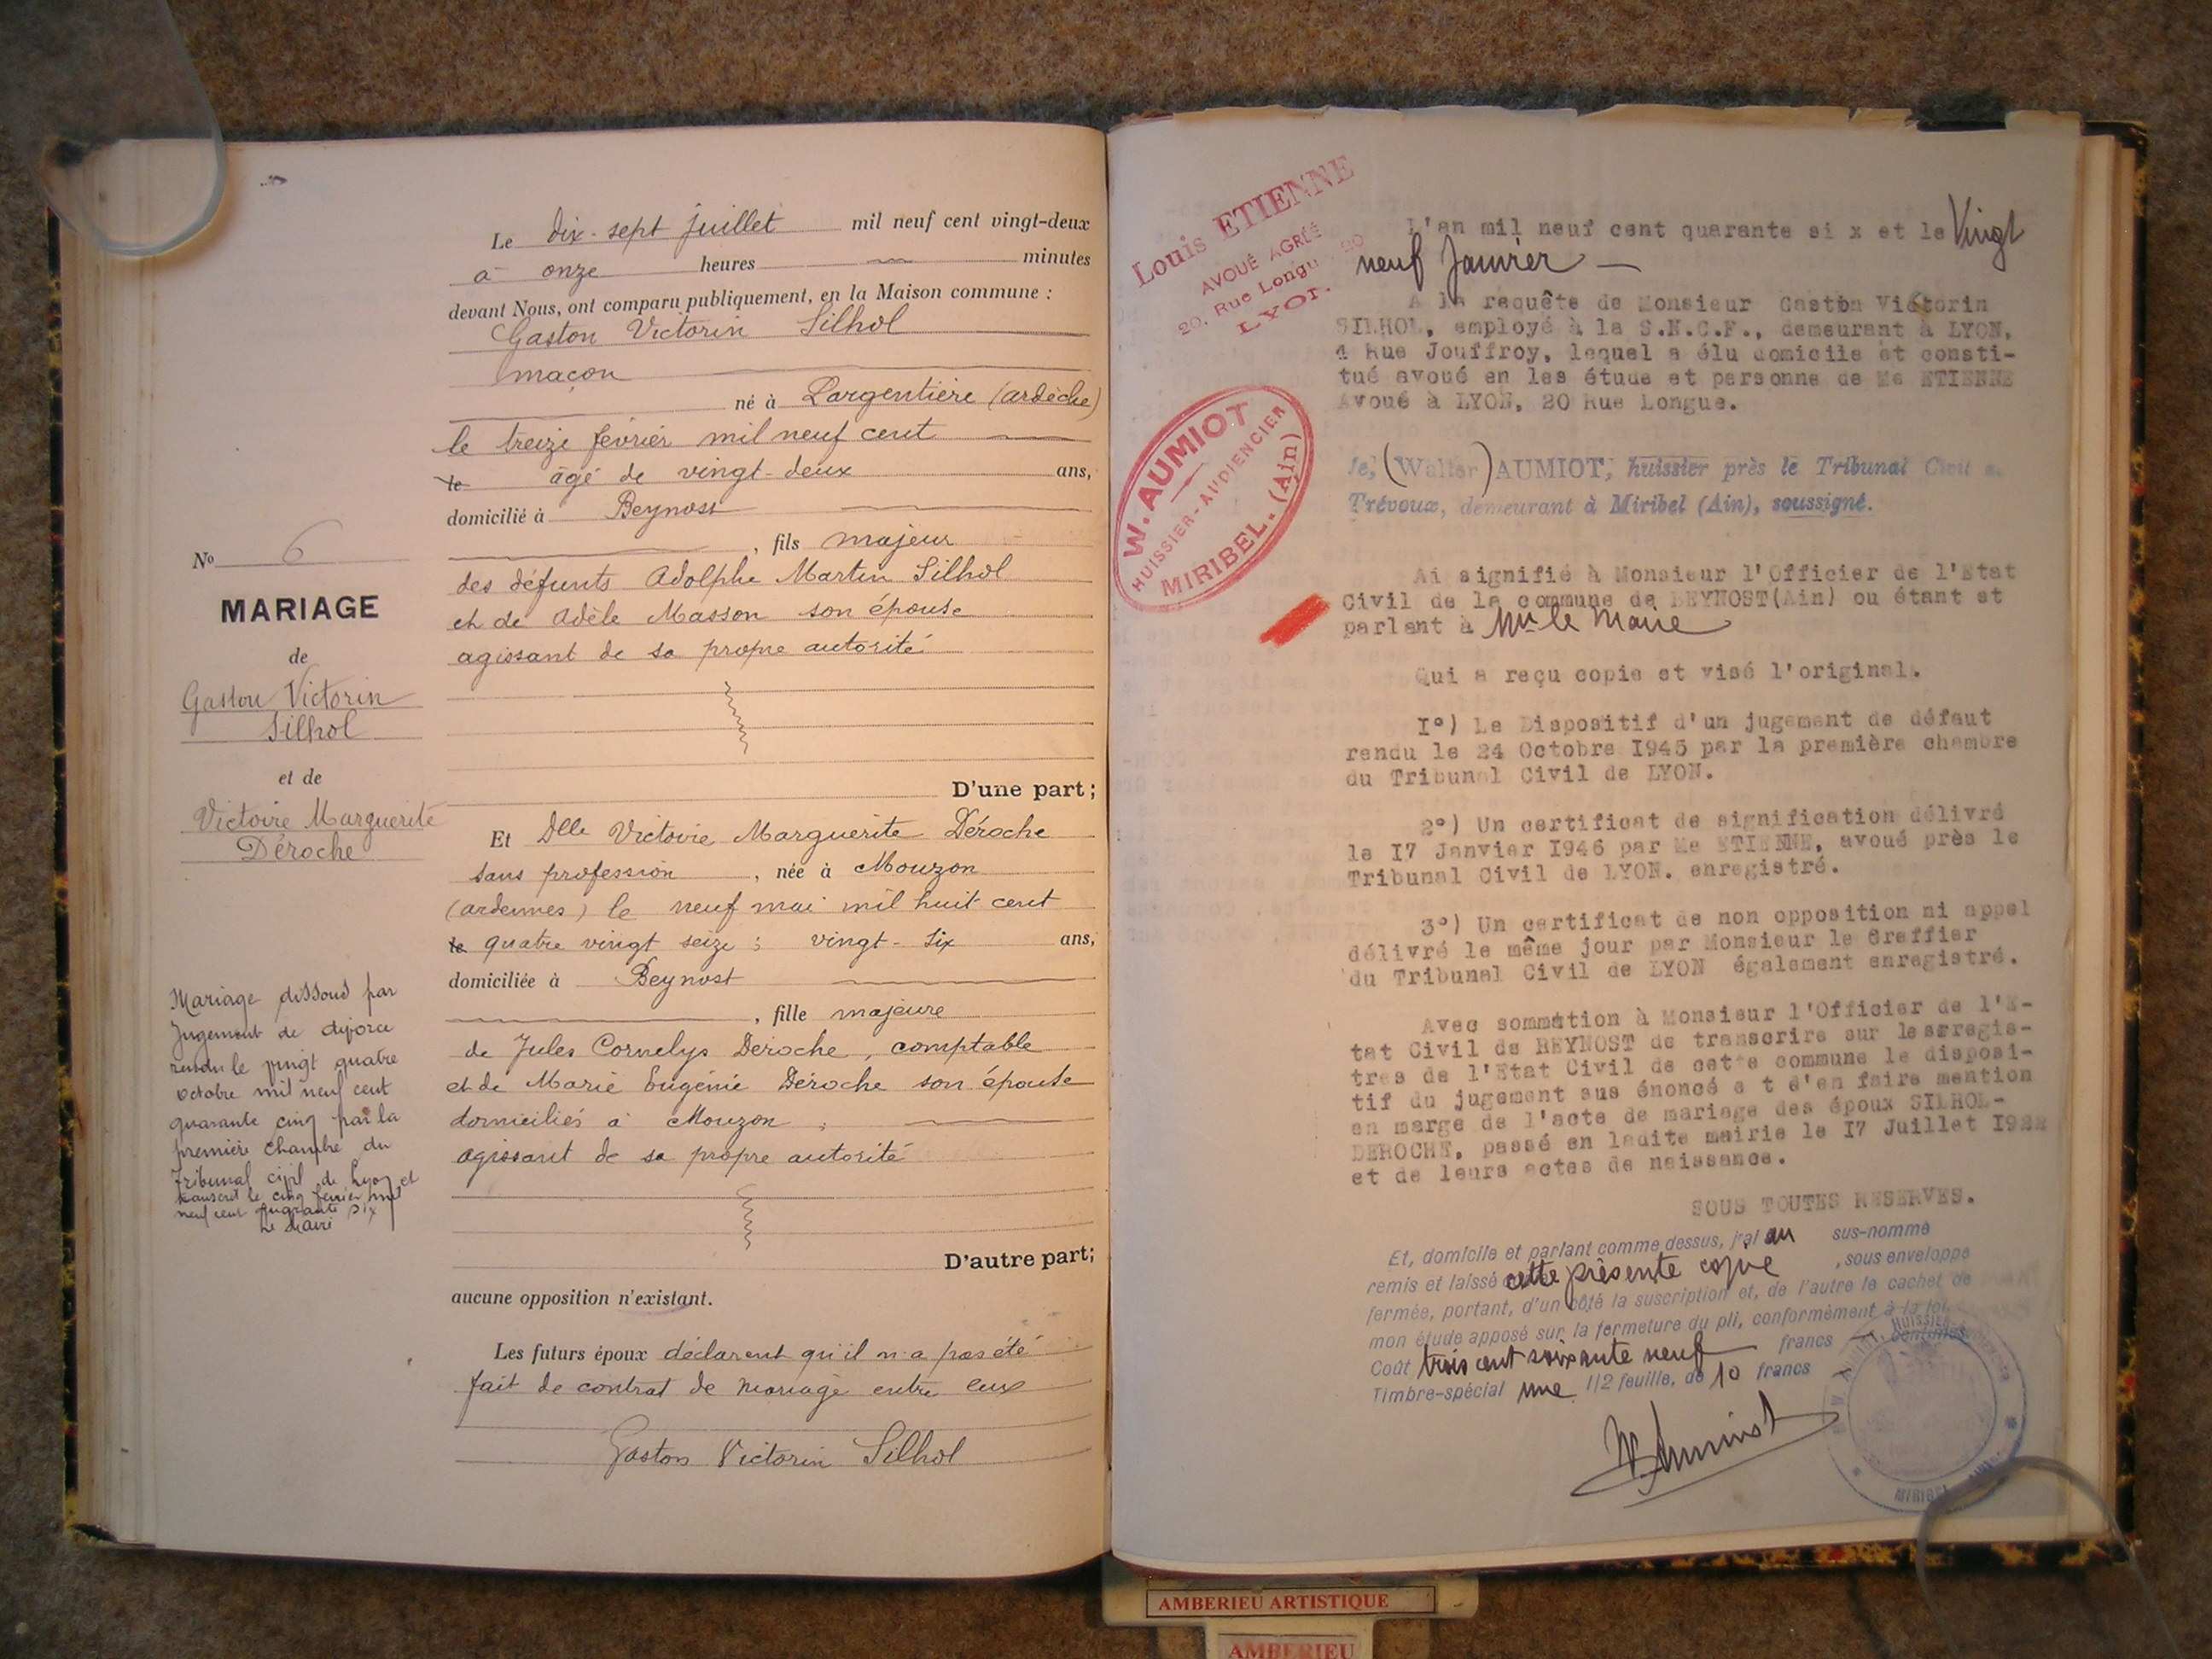 Le dix-sept juillet mil neuf cent vingt-deux
à onze heures minutes
devant Nous, ont comparu publiquement, en la Maison commune :
Gaston Victorin Silhol
maçon
né à Largentière (ardèche)
le treize février mil neuf cent
le âgé de vingt-deux ans,
domicilié à Beynost
, fils majeur
des défunts Adolphe Martin Silhol
et de Adèle Masson son épouse
agissant de sa propre autorité
D'une part ;
Et Dlle Victoire Marguerite Déroche
sans profession , née à Mouzon
(ardennes) le neuf mai mil huit cent
le quatre vingt seize ; vingt-six ans,
domiciliée à Beynost
, fille majeure
de Jules Cornelys Déroche, comptable
et de Marie Eugénie Déroche son épouse
domiciliés à Mouzon ;
agissant de sa propre autorité
D'autre part ;
aucune opposition n'existant.
Les futurs époux déclarent qu'il n'a pas été
fait de contrat de mariage entre eux
Gaston Victorin Silhol
No 6
MARIAGE
de
Gaston Victorin
Silhol
et de
Victoire Marguerite
Déroche
Mariage dissous par
Jugement de divorce
rendu le vingt quatre
octobre mil neuf cent
quarante cinq par la
première chambre du
Tribunal civil de Lyon et
transcrit le cinq février mil
neuf cent quarante six
Le Maire
Louis ETIENNE
AVOUÉ AGRÉÉ
20, Rue Longue
LYON
W. AUMIOT
HUISSIER-AUDIENCIER
MIRIBEL. (Ain)
L'an mil neuf cent quarante si x et le Vingt
neuf Janvier
A la requête de Monsieur Gaston Victorin
SILHOL, employé à la S.N.C.F., demeurant à LYON,
4 Rue Jouffroy, lequel a élu domicile et consti-
tué avoué en les étude et personne de Me ETIENNE
Avoué à LYON, 20 Rue Longue.
Je, (Walter) AUMIOT, huissier près le Tribunal Civil
Trévoux, demeurant à Miribel (Ain), soussigné.
Ai signifié à Monsieur l'Officier de l'Etat
Civil de la commune de BEYNOST(Ain) ou étant et
parlant à Mr le Maire
Qui a reçu copie et visé l'original.
I°) Le Dispositif d'un jugement de défaut
rendu le 24 Octobre I945 par la première chambre
du Tribunal Civil de LYON.
2°) Un certificat de signification délivré
le I7 Janvier I946 par Me ETIENNE, avoué près le
Tribunal Civil de LYON. enregistré.
3°) Un certificat de non opposition ni appel
délivré le même jour par Monsieur le Greffier
du Tribunal Civil de LYON également enregistré.
Avec sommation à Monsieur l'Officier de l'E-
tat Civil de BEYNOST de transcrire sur les regis-
tres de l'Etat Civil de cette commune le disposi-
tif du jugement sus énoncé e t d'en faire mention
en marge de l'acte de mariage des époux SILHOL-
DEROCHE, passé en ladite mairie le I7 Juillet I922
et de leurs actes de naissance.
SOUS TOUTES RESERVES.
Et, domicile et parlant comme dessus, j'ai au sus-nommé
remis et laissé cette présente copie , sous enveloppe
fermée, portant, d'un côté la suscription et, de l'autre le cachet de
mon étude apposé sur la fermeture du pli, conformément à la loi.
Coût trois cent soixante neuf francs
Timbre-spécial une 1/2 feuille, de 10 francs
W. Aumiot
HUISSIER
MIRIBEL
AMBERIEU ARTISTIQUE
AMBERIEU